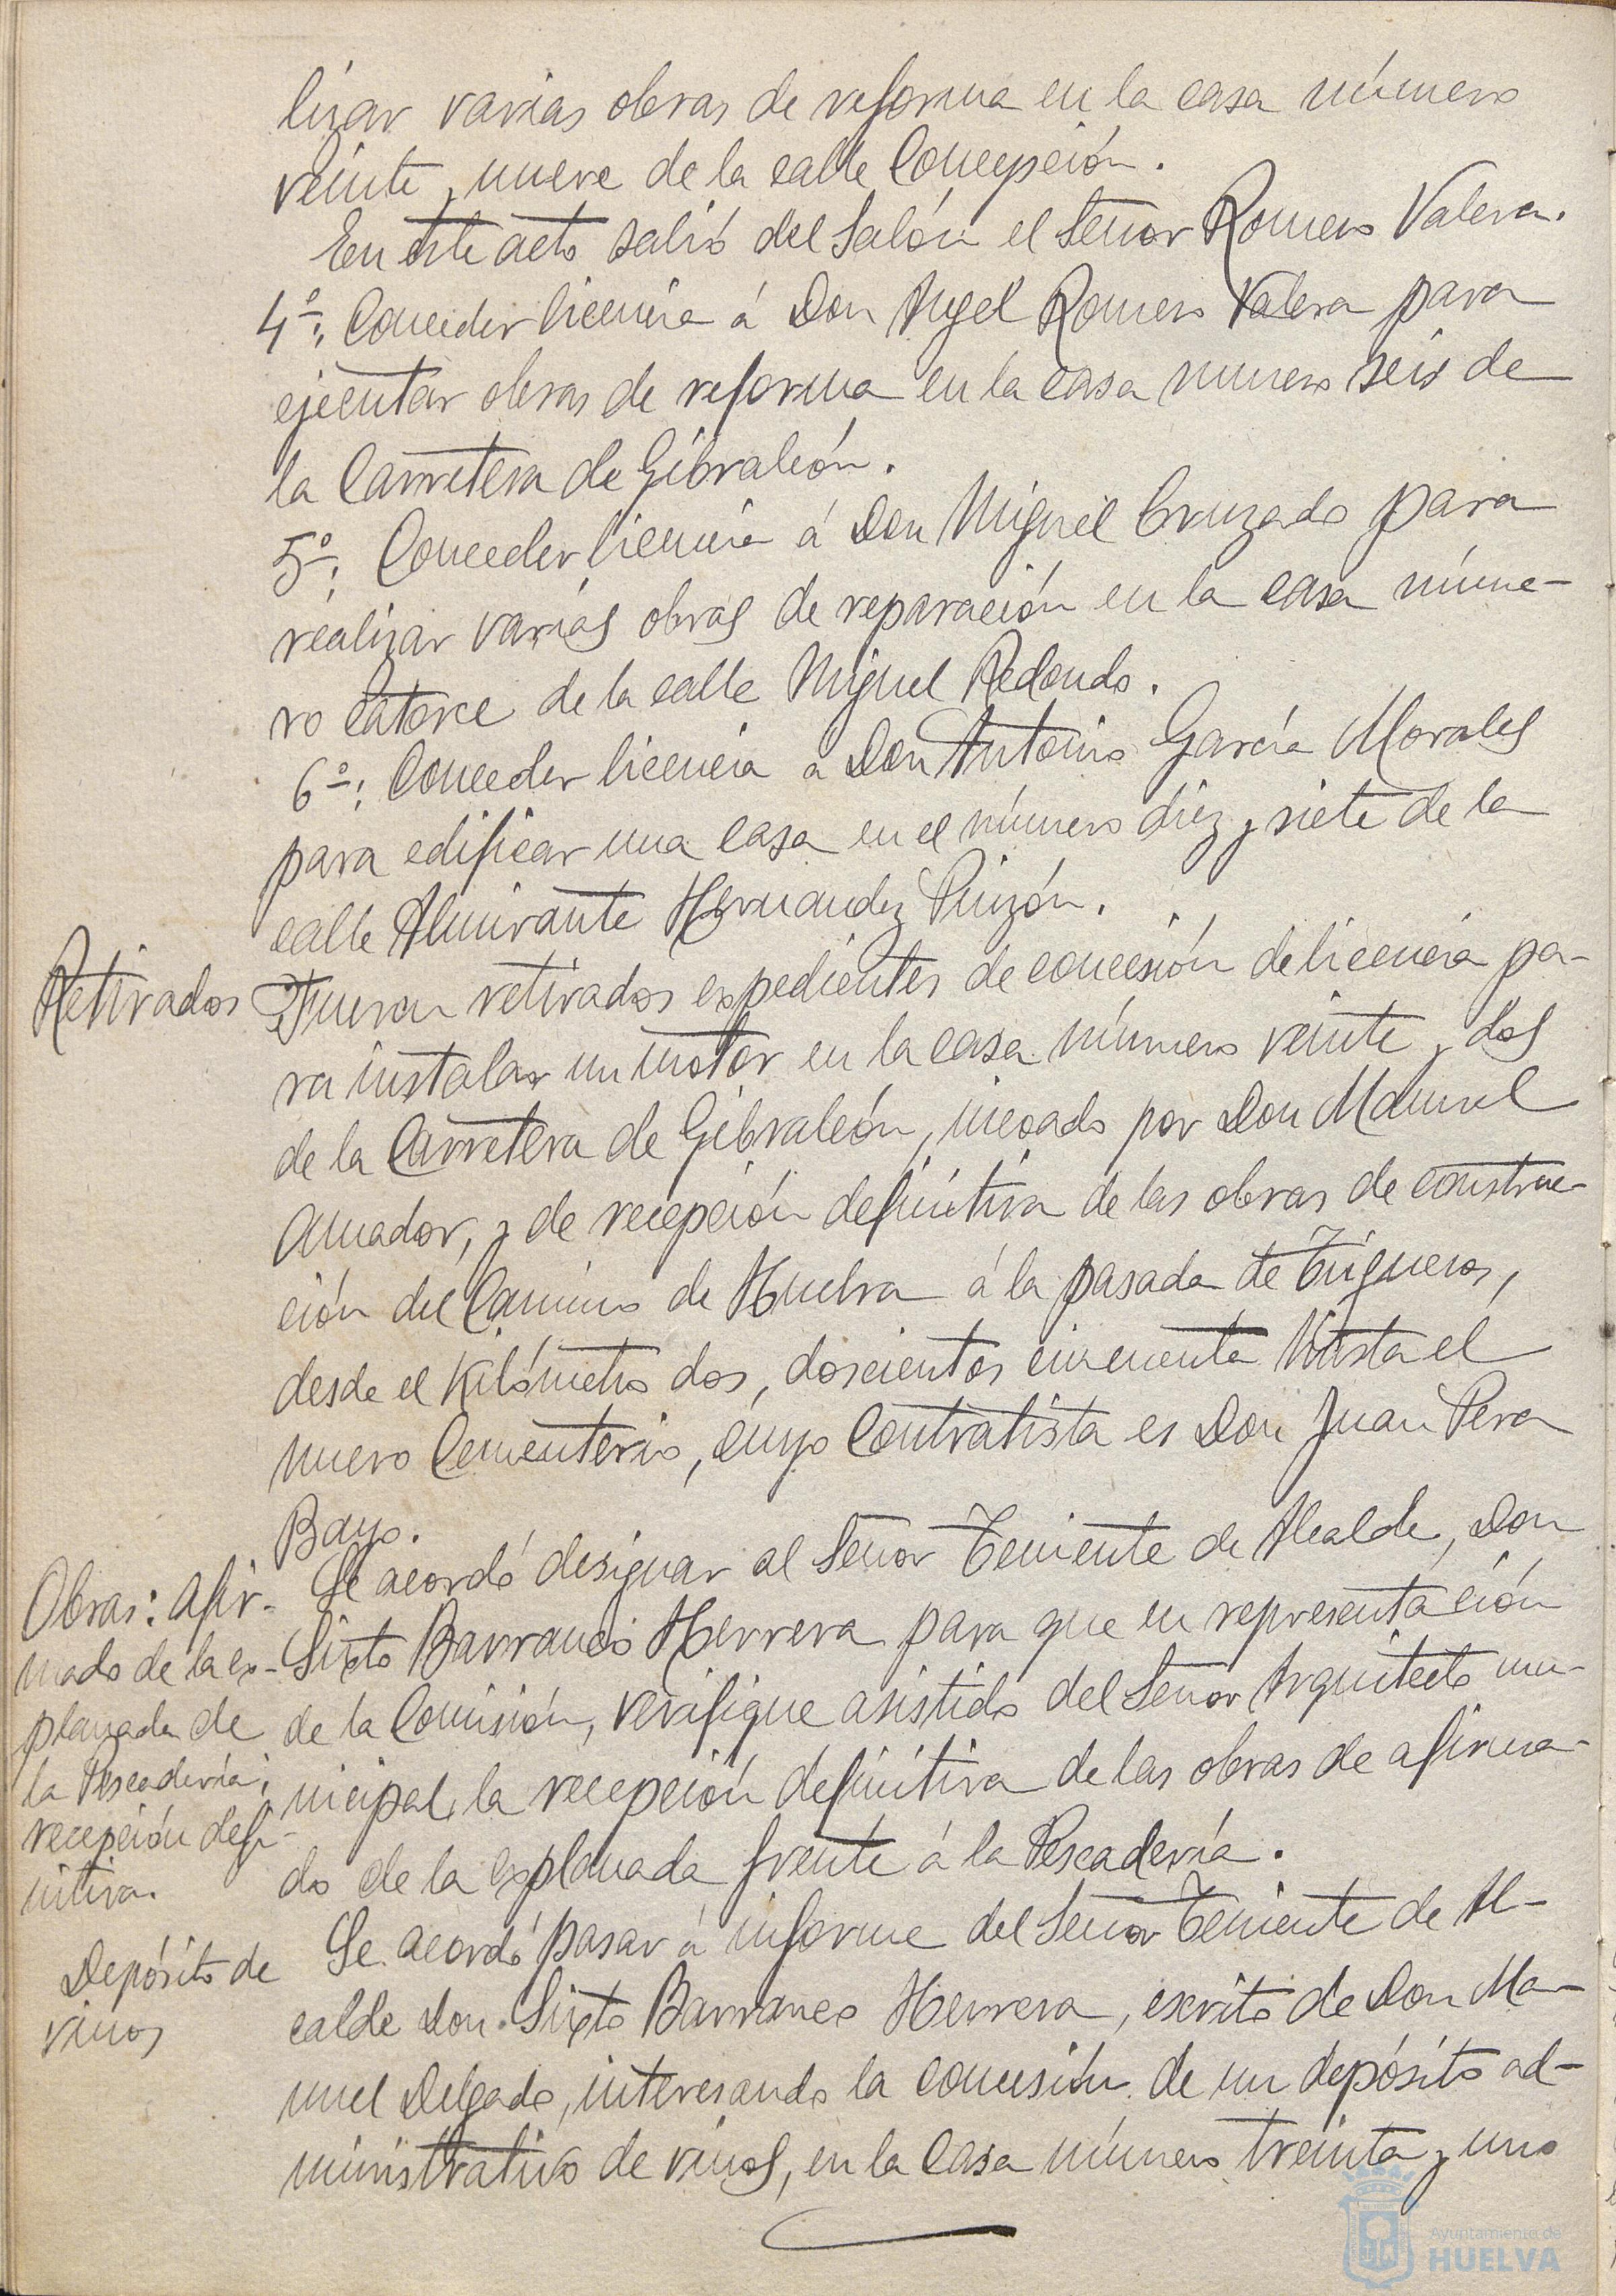 lizar varias obras de reforma en la casa número
veinte y nueve de la calle Concepción.
En este acto salió del Salón el Señor Romero Valera.
4º: Conceder licencia á Don Angel Romero Valera para
ejecutar obras de reforma en la casa numero seis de
la Carretera de Gibraleón.
5º: Conceder licencia á Don Miguel Cruzado para
realizar varias obras de reparación en la casa núme-
ro catorce de la calle Miguel Redondo.
6º: Conceder licencia a Don Antonio García Morales
para edificar una casa en el número diez y siete de la
calle Almirante Hernandez Pinzón.
Retirados
Fueron retirados expedientes de concesión de licencia pa-
ra instalar un motor en la casa número veinte y dos
de la Carretera de Gibraleón, incoado por Don Manuel
Amador, y de recepción definitiva de las obras de construc-
ción del Camino de Huelva á la pasada de Trigueros,
desde el Kilómetro dos, doscientos cincuenta hasta el
nuevo Cementerio, cuyo Contratista es Don Juan Pera
Bayo.
Obras: afir-
mado de la ex-
planada de
la Pescadería;
recepción defi-
nitiva.
Se acordó designar al Señor Teniente de Alcalde, Don
Sixto Barranco Herrera para que en representación
de la Comisión, verifique asistido del Señor Arquitecto mu-
nicipal, la recepción definitiva de las obras de afirma-
do de la explanada frente á la Pescadería.
Depósito de
vinos
Se acordó pasar á informe del Señor Teniente de Al-
calde Don Sixto Barranco Herrera, escrito de Don Ma-
nuel Delgado, interesando la concesión de un depósito ad-
ministrativo de vinos, en la Casa número treinta y uno
Ayuntamiento de
HUELVA